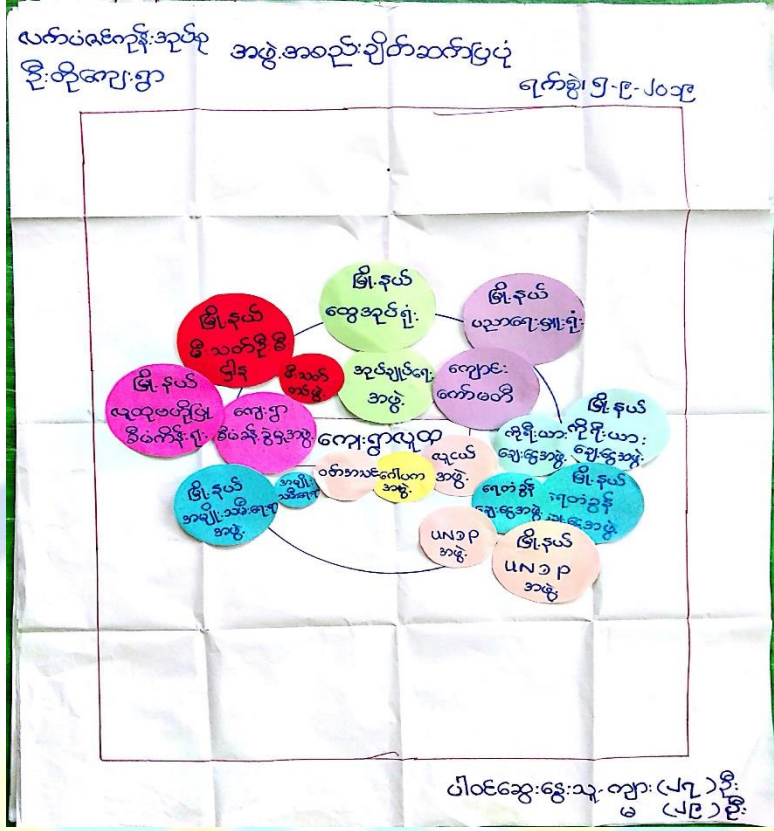 လက်ပံဇင်ကုန်းအုပ်စု
ဦးတိုကျေးရွာ
အဖွဲ့အစည်းချိတ်ဆက်ပြပုံ
ရက်စွဲ၊ ၅-၉-၂၀၁၉
မြို့နယ်
ထွေအုပ်ရုံး
မြို့နယ်
မီးသတ်ဦးစီး
ဌာန
မြို့နယ်
ပညာရေးမှူးရုံး
မီးသတ်
တပ်ဖွဲ့
အုပ်ချုပ်ရေး
အဖွဲ့
ကျောင်း
ကော်မတီ
မြို့နယ်
လူထုဗဟိုပြု
စီမံကိန်းရုံး
ကျေးရွာ
အဖွဲ့
ကျေးရွာလူထု
ကိုရီးယား
ချေးငွေအဖွဲ့
မြို့နယ်
ကိုရီးယား
ချေးငွေအဖွဲ့
မြို့နယ်
အမျိုးသမီးရေးရာ
အဖွဲ့
အမျိုး
သမီးရေးရာ
ဝတ်အသင်း
ဂေါပက
အဖွဲ့
လူငယ်
အဖွဲ့
ရေတံခွန်
ချေးငွေအဖွဲ့
မြို့နယ်
ရေတံခွန်
ချေးငွေအဖွဲ့
UNDP
အဖွဲ့
မြို့နယ်
UNDP
အဖွဲ့
ပါဝင်ဆွေးနွေးသူ ကျား (၂၇) ဦး
မ (၂၉) ဦး